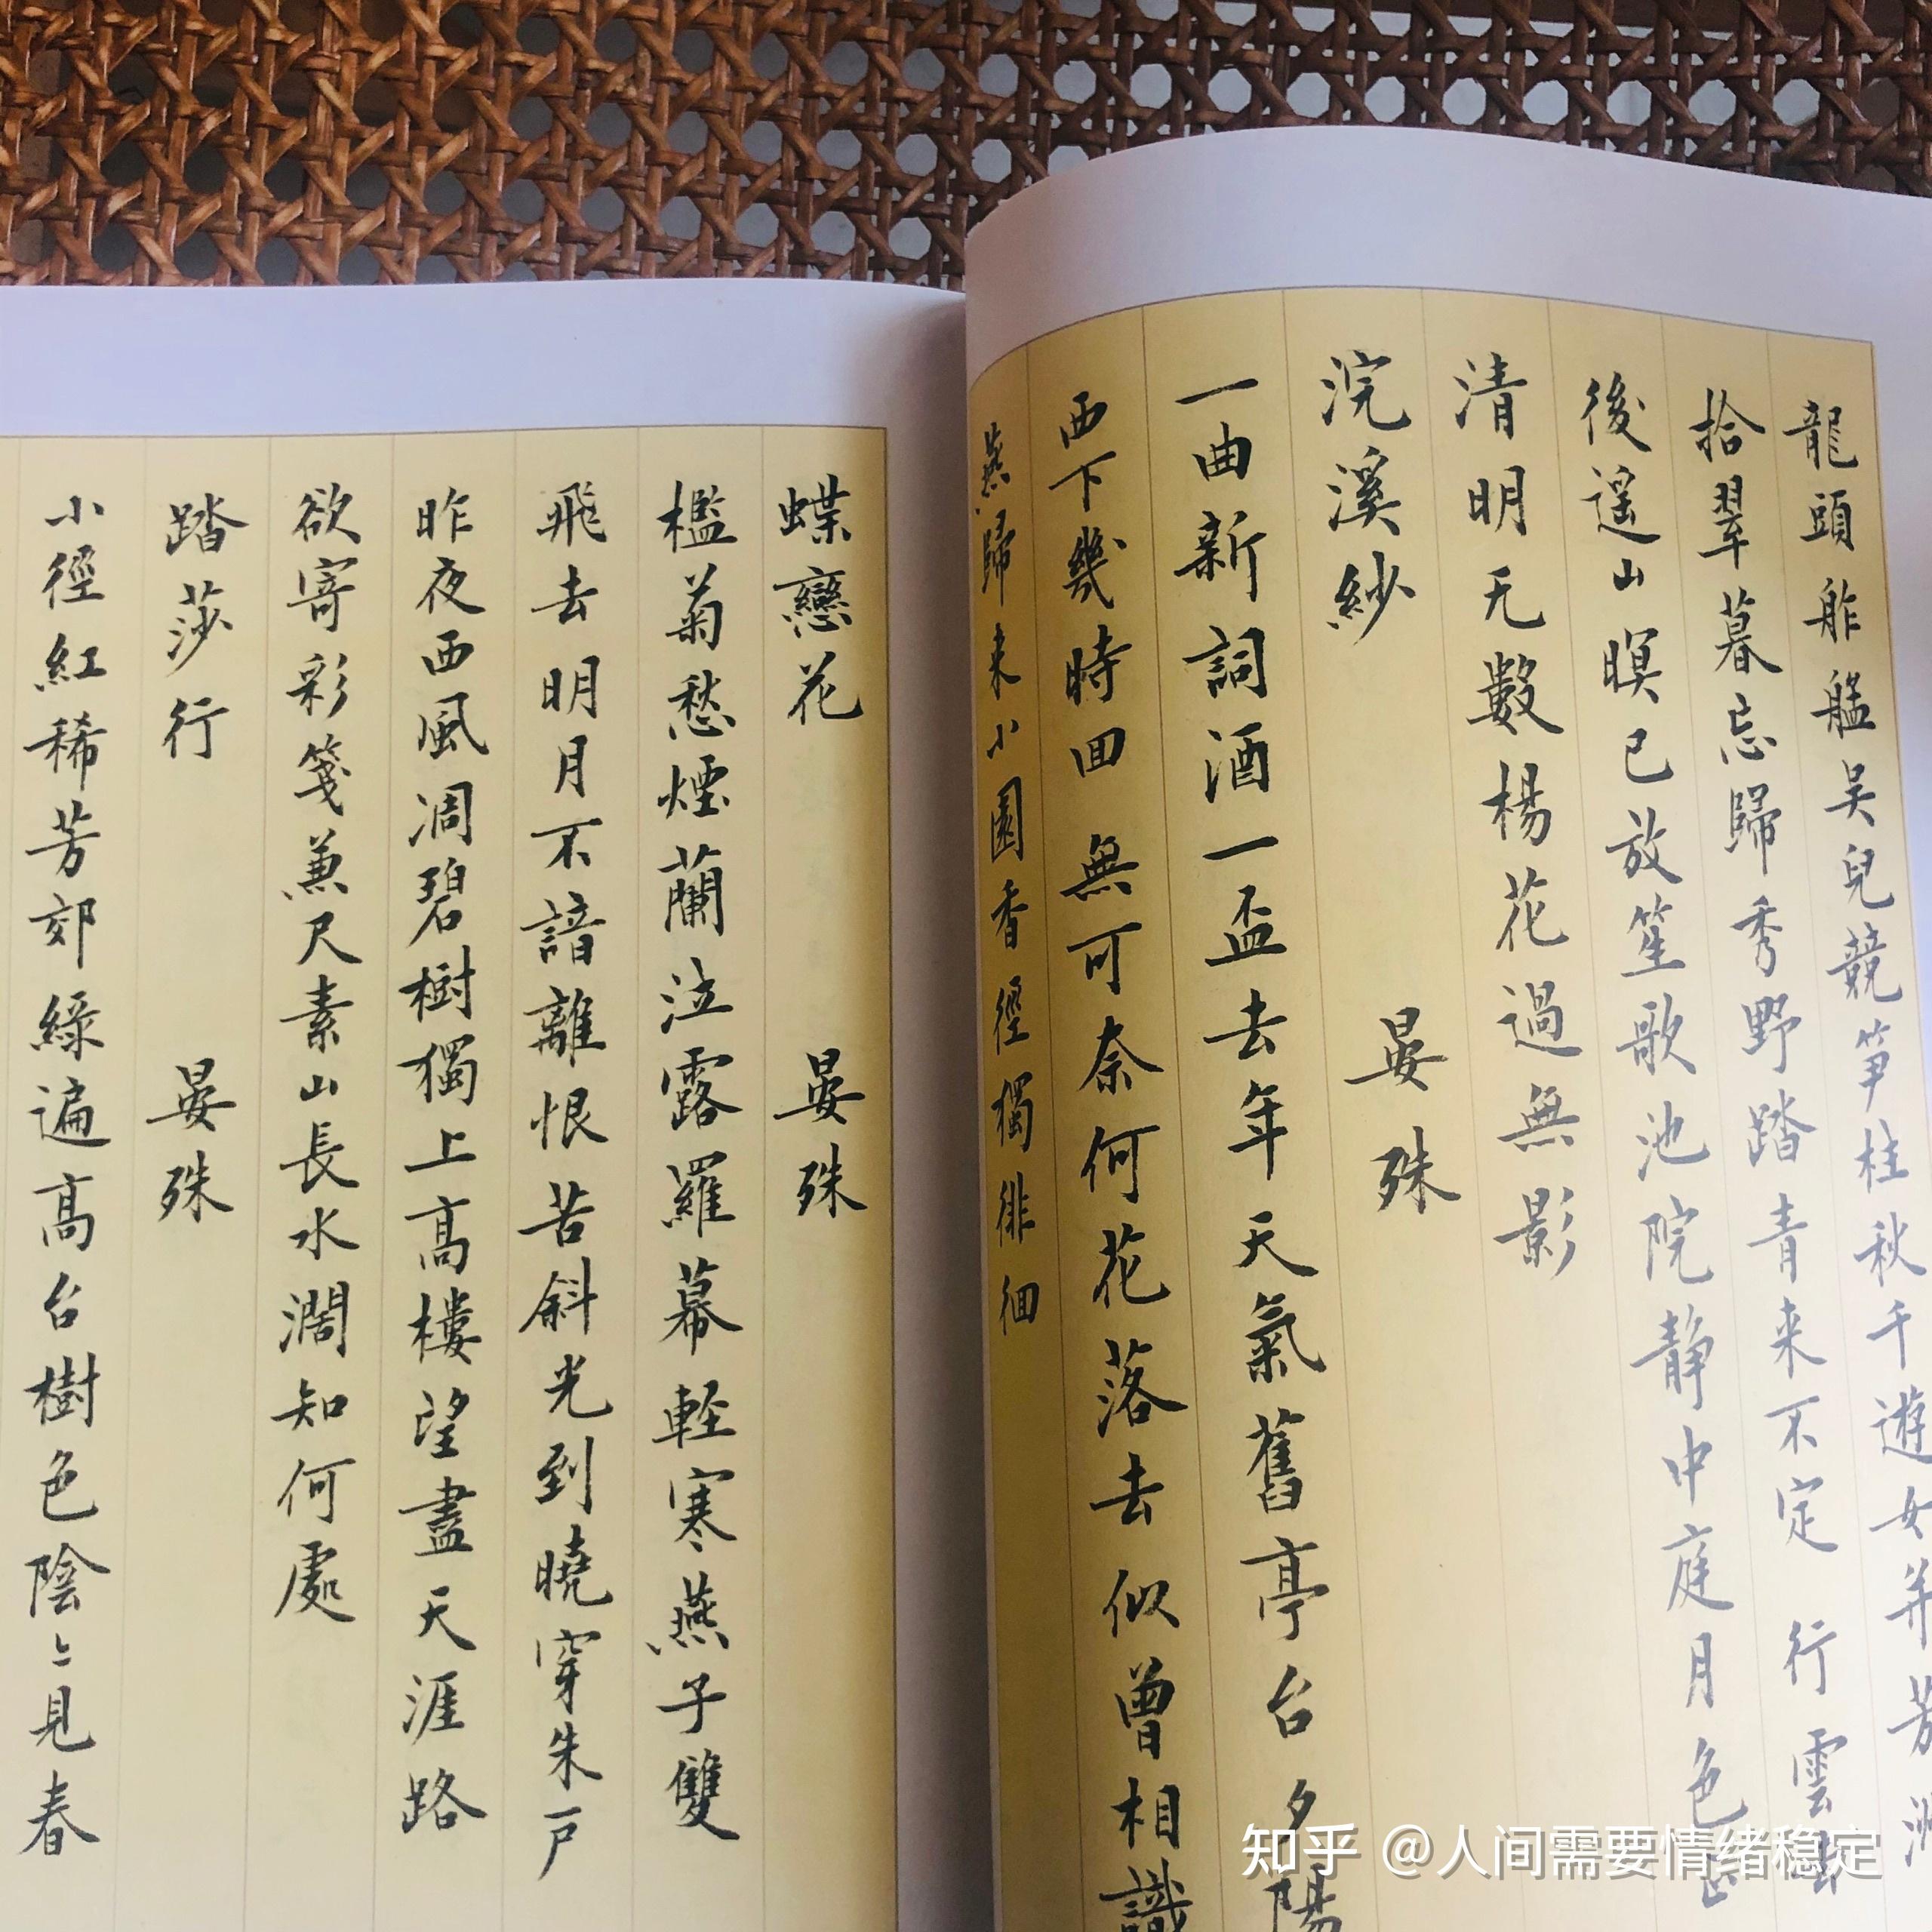 龍頭舴艋吳兒競笋柱秋千遊女并芳洲
拾翠暮忘歸秀野踏青来不定行雲去
後遥山暝已放笙歌池院静中庭月色正
清明无數楊花過無影
浣溪紗 晏殊
一曲新詞酒一盃去年天氣舊亭台夕陽
西下幾時回無可奈何花落去似曾相識
燕歸来小園香徑獨徘徊
蝶戀花 晏殊
檻菊愁煙蘭泣露羅幕輕寒燕子雙
飛去明月不諳離恨苦斜光到曉穿朱戸
昨夜西風凋碧樹獨上高樓望盡天涯路
欲寄彩箋兼尺素山長水濶知何處
踏莎行 晏殊
小徑紅稀芳郊綠遍高台樹色陰〻見春
知乎 @人间需要情绪稳定